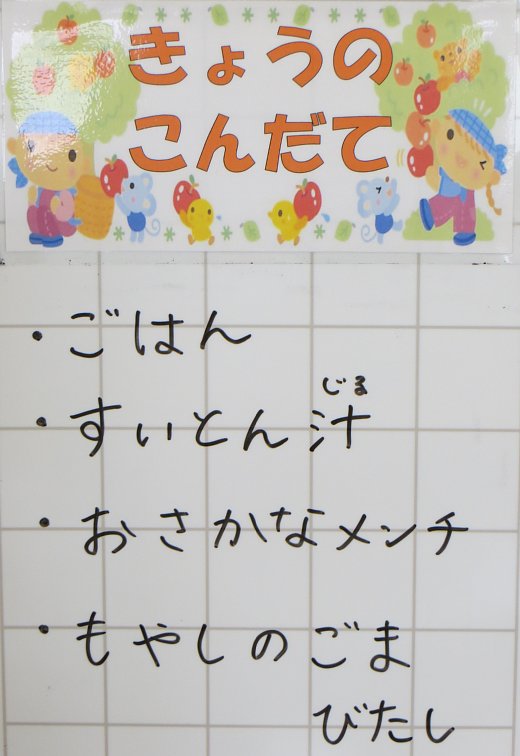 きょうの
こんだて
・ごはん
じる
・すいとん汁
・おさかなメンチ
・もやしのごま
びたし